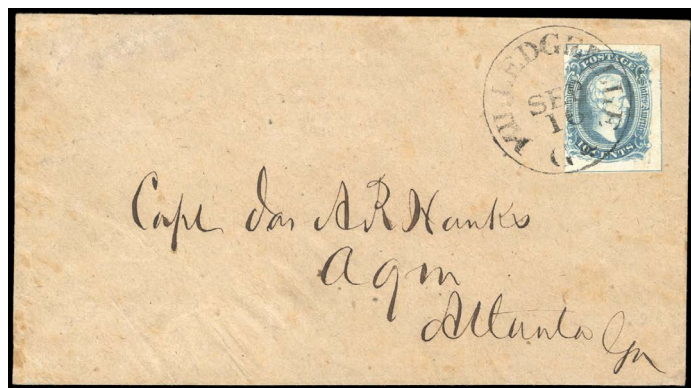 MILLEDGEVILLE
SEP
16
G
POSTAGE
TEN CENTS
Capt Jas A R Hanks
A q m
Atlanta Ga